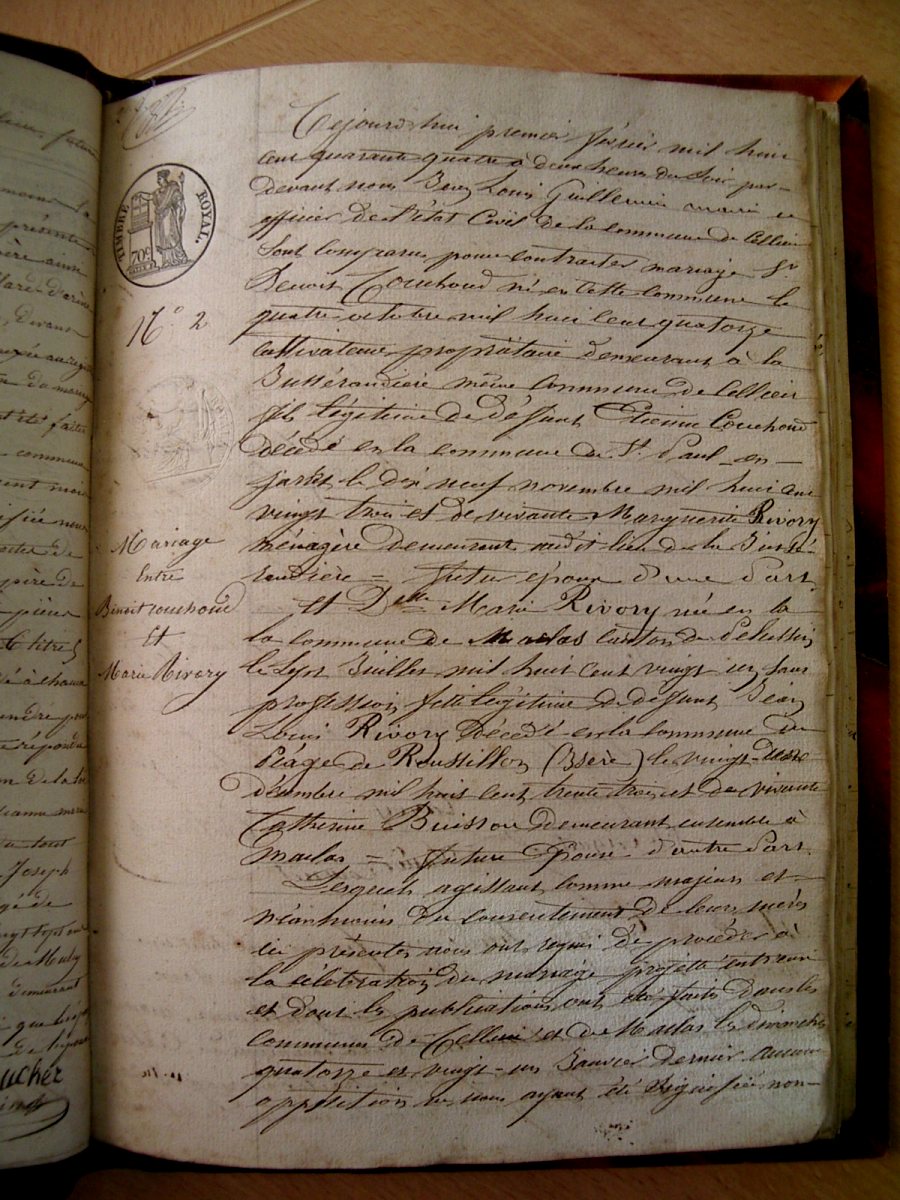 TIMBRE ROYAL.
70c
N° 2
Mariage
Entre
Benoit couchoud
Et
Marie Rivory
Cejourd'hui premier février mil huit
cent quarante quatre à deux heures du soir par-
devant nous Jean Louis Guillemin maire et
officier de l'état Civil de la commune de Cellieu
Sont comparus pour contracter mariage Sr
Benoit Couchoud né en cette commune le
quatre octobre mil huit cent quatorze
cultivateur propriétaire demeurant à la
même commune de Cellieu
fils légitime de défunt Etienne Couchoud
décédé en la commune de St Paul-en-
jarret le dix neuf novembre mil huit cent
vingt trois et de vivante Marguerite Rivory
ménagère demeurant audit lieu de la
= futur époux d'une part
Et Delle Marie Rivory née en la
la commune de Maclas canton de Pelussin
le sept Juillet mil huit cent vingt un sans
profession fille légitime de défunt Jean
Louis Rivory décédé en la commune du
Péage de Roussillon (Isère) le vingt-deux
décembre mil huit cent trente trois et de vivante
Catherine Buisson demeurant ensemble à
Maclas = future Epouse d'autre part.
Lesquels agissant comme majeurs et
néanmoins du consentement de leurs mères
ici présentes nous ont requis de procéder à
la célébration du mariage projetté entr'eux
et dont les publications ont été faites dans les
communes de Cellieu et de Maclas les dimanches
quatorze et vingt-un Janvier dernier aucune
opposition ne nous ayant été signifiée non-